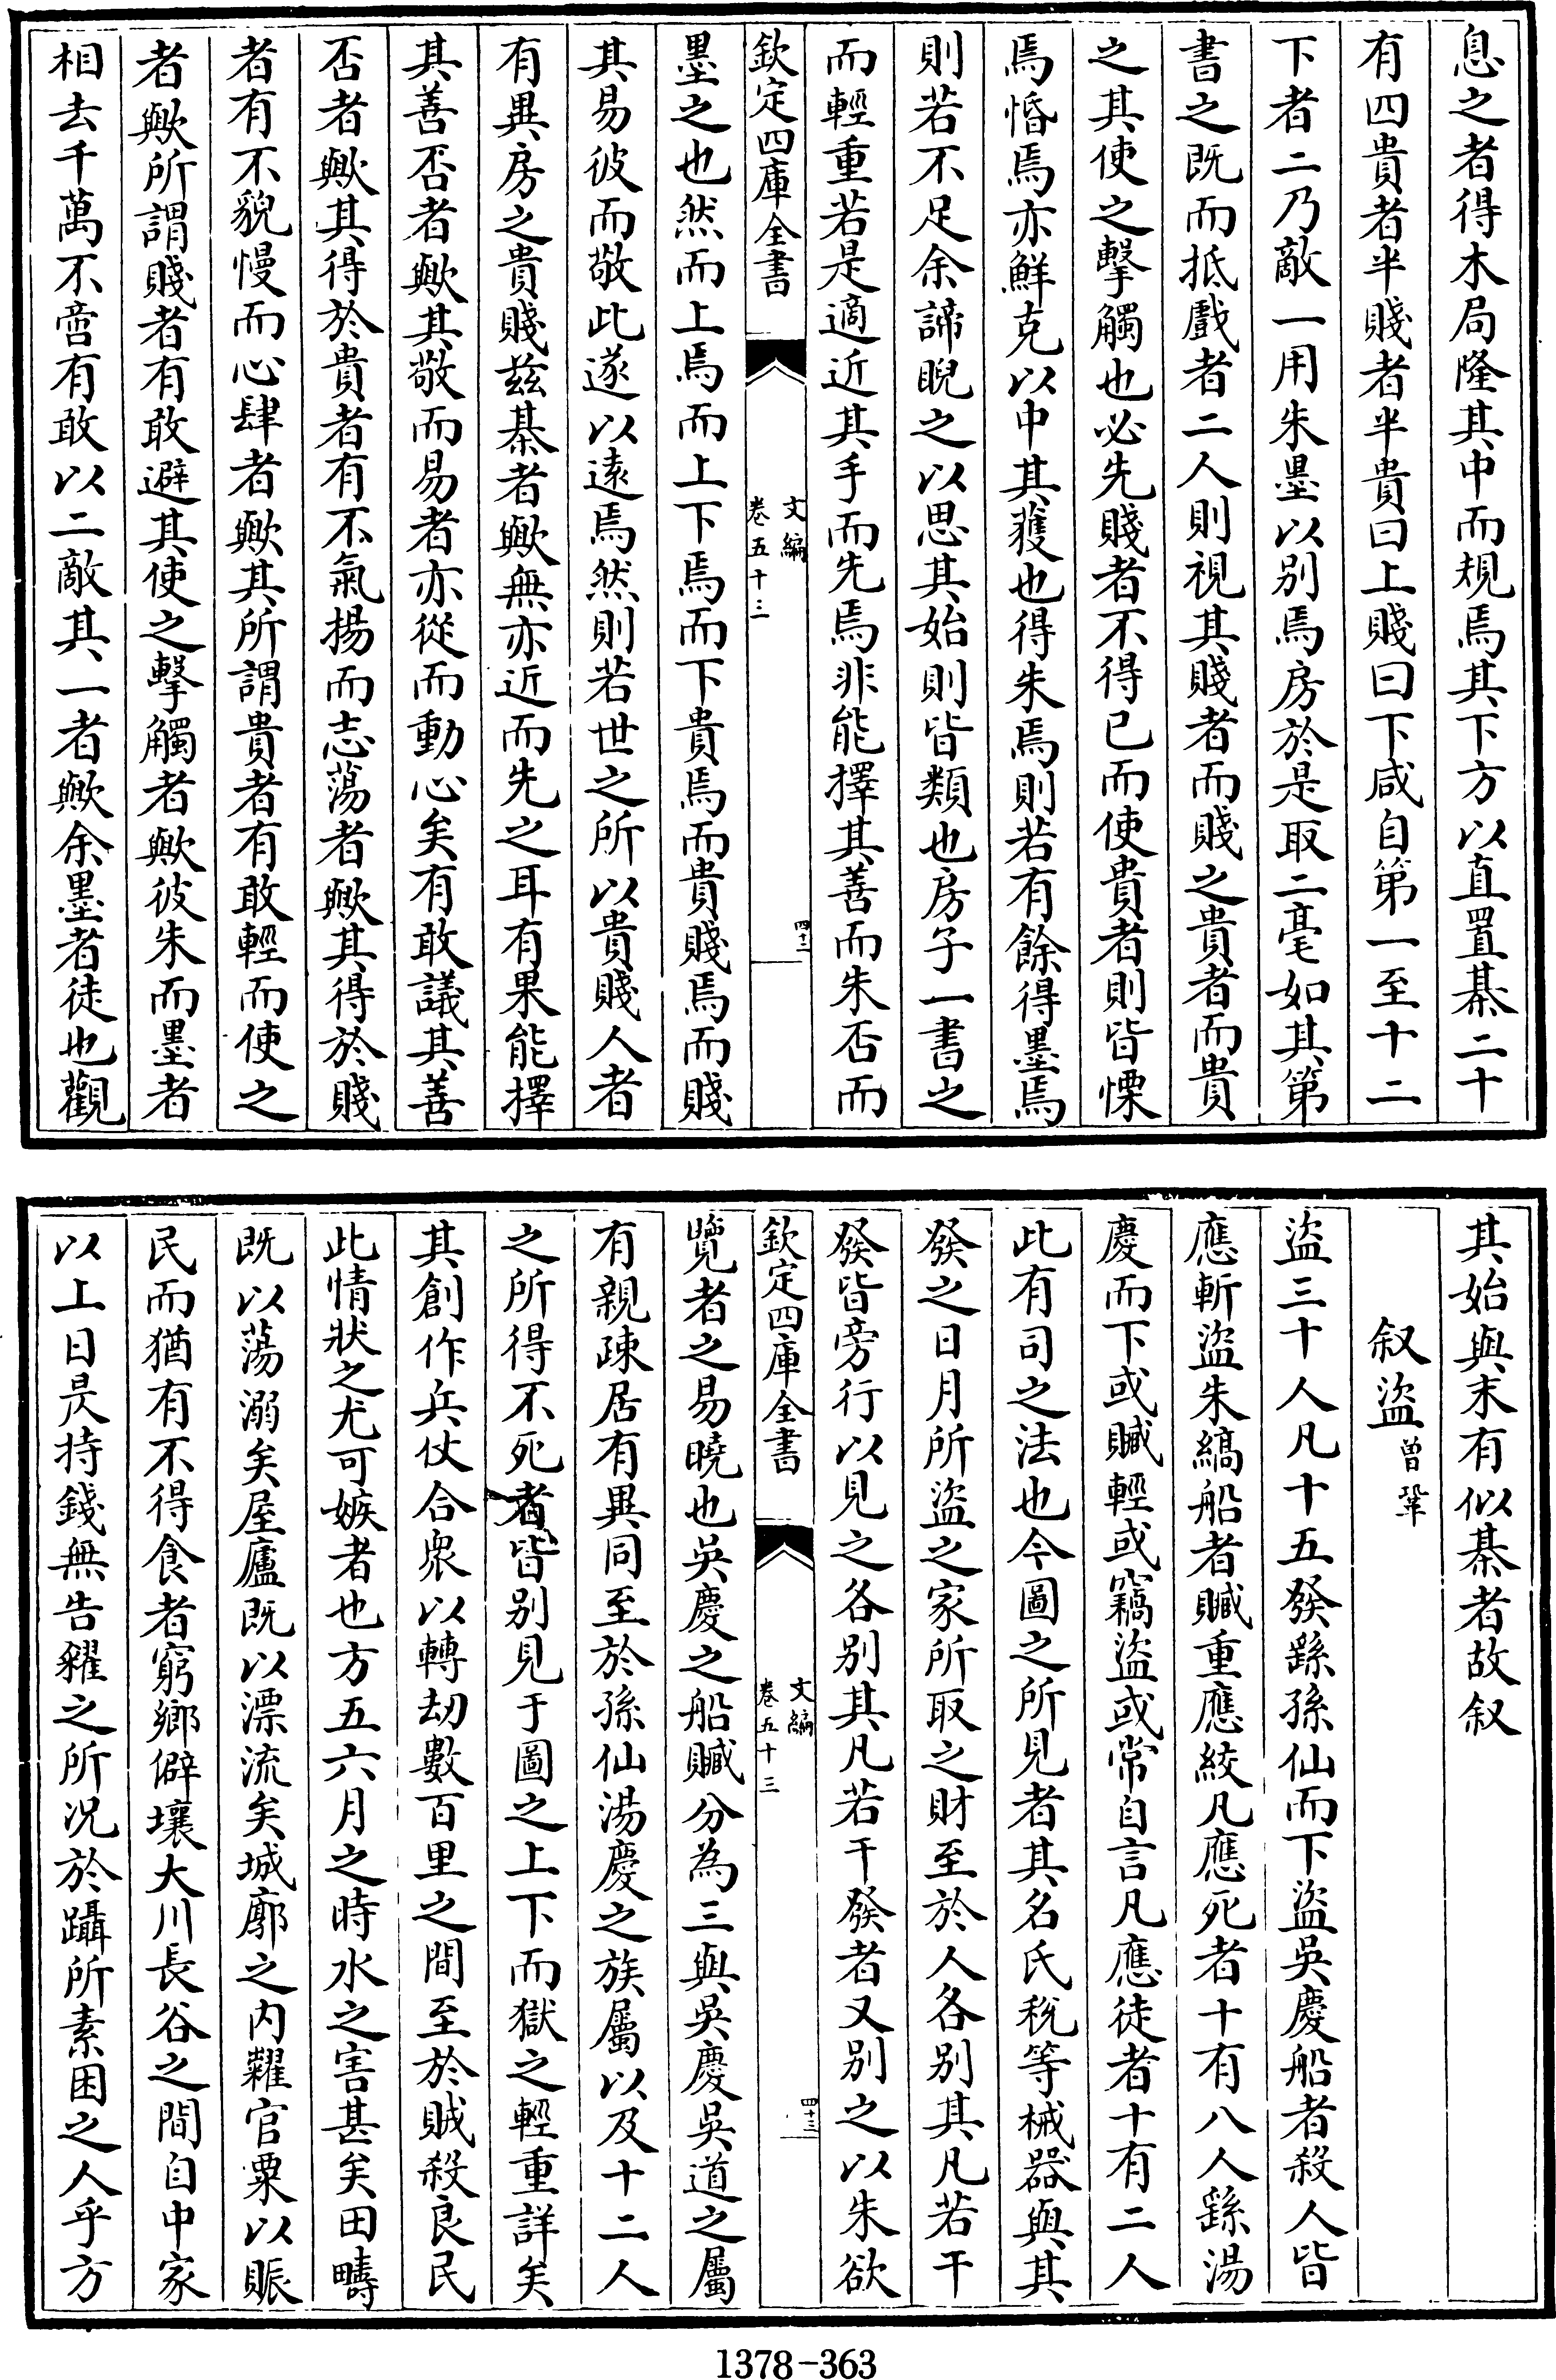 息之者得木局隆其中而規焉其下方以直置棊二十
有四貴者半賤者半貴曰上賤曰下咸自第一至十二
下者二乃敵一用朱墨以别焉房於是取二毫如其第
書之既而抵戲者二人則視其賤者而賤之貴者而貴
之其使之擊觸也必先賤者不得已而使貴者則皆慄
焉惛焉亦鮮克以中其獲也得朱焉則若有餘得墨焉
則若不足余諦睨之以思其始則皆類也房子一書之
而輕重若是適近其手而先焉非能擇其善而朱否而
欽定四庫全書
文編
卷五十三
四十二
墨之也然而上焉而上下焉而下貴焉而貴賤焉而賤
其易彼而敬此遂以遠焉然則若世之所以貴賤人者
有異房之貴賤兹棊者歟無亦近而先之耳有果能擇
其善否者歟其敬而易者亦從而動心矣有敢議其善
否者歟其得於貴者有不氣揚而志蕩者歟其得於賤
者有不貌慢而心肆者歟其所謂貴者有敢輕而使之
者歟所謂賤者有敢避其使之擊觸者歟彼朱而墨者
相去千萬不啻有敢以二敵其一者歟余墨者徒也觀
其始與末有似棊者故叙
叙盗 曾鞏
盗三十人凡十五發繇孫仙而下盗吳慶船者殺人皆
應斬盗朱縞船者贓重應絞凡應死者十有八人繇湯
慶而下或贓輕或竊盗或常自言凡應徒者十有二人
此有司之法也今圖之所見者其名氏稅等械器與其
發之日月所盗之家所取之財至於人各别其凡若干
發皆旁行以見之各别其凡若干發者又别之以朱欲
欽定四庫全書
文編
卷五十三
四十三
覽者之易曉也吳慶之船贓分為三與吳慶吳道之屬
有親疎居有異同至於孫仙湯慶之族屬以及十二人
之所得不死者皆别見于圖之上下而獄之輕重詳矣
其創作兵仗合衆以轉刼數百里之間至於賊殺良民
此情狀之尤可嫉者也方五六月之時水之害甚矣田疇
既以蕩溺矣屋廬既以漂流矣城廓之内糶官粟以賑
民而猶有不得食者窮鄉僻壤大川長谷之間自中家
以上日昃持錢無告糴之所况於躡所素困之人乎方
1378-363